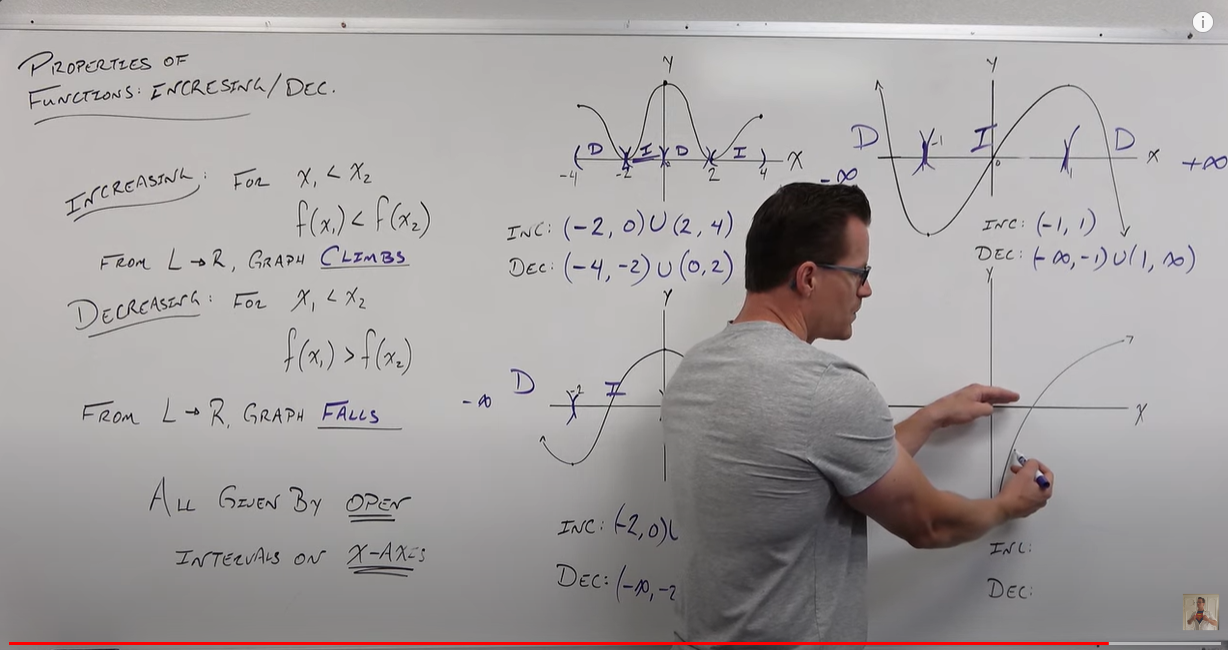 PROPERTIES OF
FUNCTIONS: INCRESING/DEC.
INCREASING: FOR x₁ < x₂
f(x₁) < f(x₂)
FROM L → R, GRAPH CLIMBS
DECREASING: FOR x₁ < x₂
f(x₁) > f(x₂)
FROM L → R, GRAPH FALLS
ALL GIVEN BY OPEN
INTERVALS ON X-AXIS
Y
( D I D I ) X
-4 -2 2 4
INC: (-2, 0) ∪ (2, 4)
DEC: (-4, -2) ∪ (0, 2)
Y
D -1 I D X
-∞ 0 1 +∞
INC: (-1, 1)
DEC: (-∞, -1) ∪ (1, ∞)
Y
D -2 I
-∞
INC: (-2, 0)
DEC: (-∞, -2
Y
X
INC:
DEC:
i